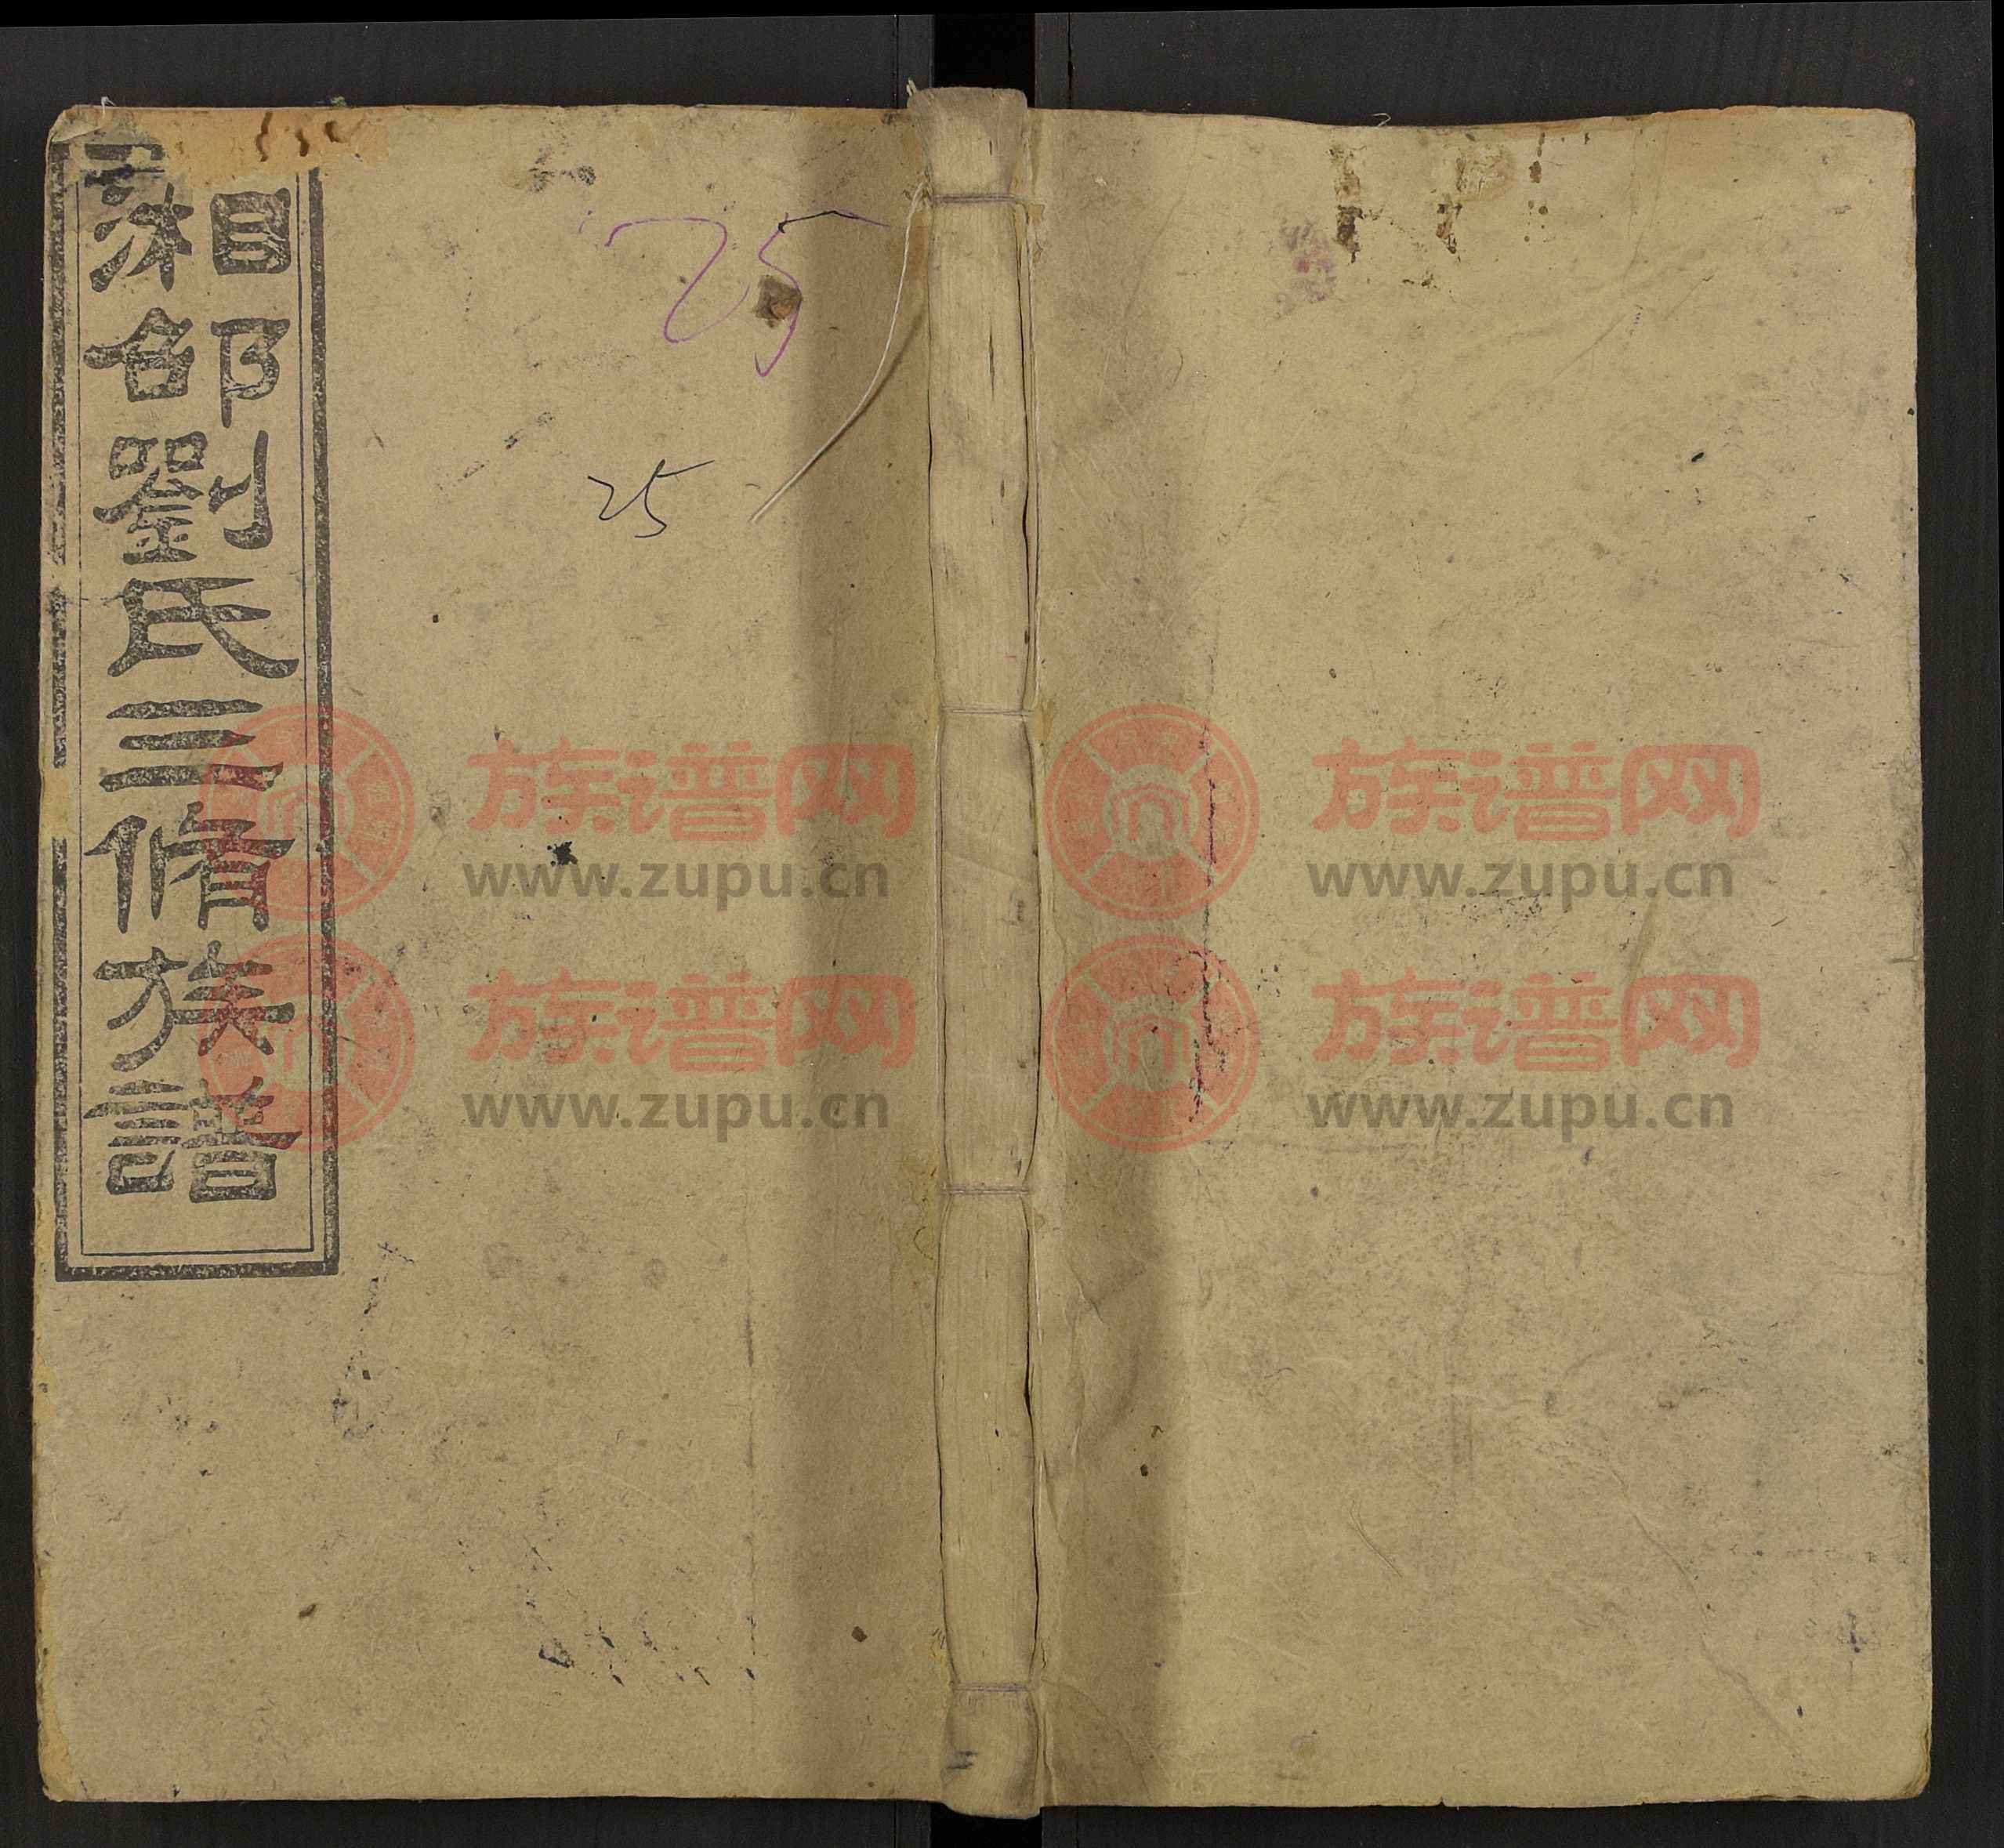 湘邵劉氏三脩族譜
25
25
族谱网
www.zupu.cn
族谱网
www.zupu.cn
族谱网
www.zupu.cn
族谱网
www.zupu.cn